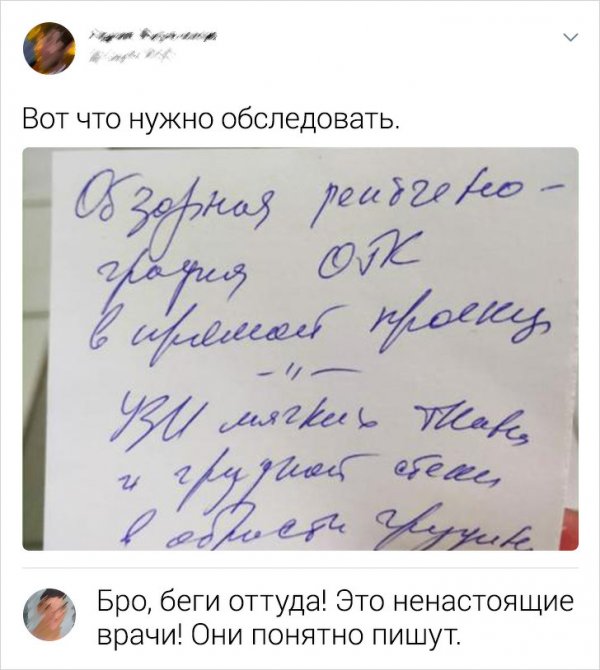 Вот что нужно обследовать.
Обзорная рентгено-
графия ОГК
в прямой проекции
-"-
УЗИ мягких тканей
и грудной стенки
в области грудин
Бро, беги оттуда! Это ненастоящие
врачи! Они понятно пишут.